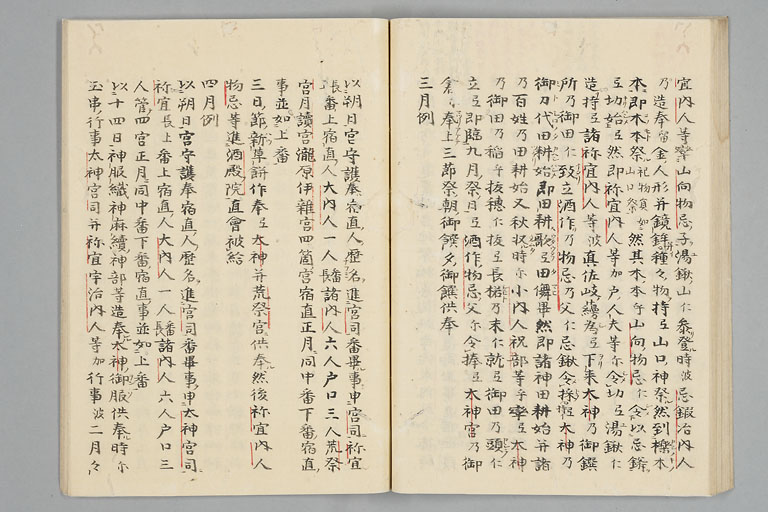 宜内人等率山向物忌子湯鍬山仁参登時波忌鍛冶内人
乃造奉留金人形并鏡鉾種々物持弖山口神祭然到櫟木
本即木本祭 然其木本乎山向物忌仁令以忌鎌
弖切始弖然即祢宜内人等加戸人夫等尓令切弖湯鍬仁
造持弖諸祢宜内人等波真佐岐蘰為弖下来大神乃御饌
所乃御田仁致立酒作乃物忌乃父仁忌鍬令採弖大神乃
御刀代田耕始即田耕歌弖田儛畢然即諸神田耕始并諸
乃百姓乃田耕始又秋収時尓小内人祝部等乎率弖大神
乃御田乃稲乎抜穂仁抜弖長楉乃末仁就弖御田乃頭仁
立弖即臨九月祭日弖酒作物忌父尓令捧弖大神宮乃御
倉奉上三節祭朝御饌夕御饌供奉
三月例
以朔日宮守護奉宿直人歴名進宮司番畢事申宮司祢宜
長番上宿直人大内人一人長番諸内人六人戸口三人荒祭
宮月讀宮瀧原伊雜宮四箇宮宿直正月同中番下番宿直
事並如上番
三日節新草餅作奉弖大神并荒祭宮供奉然後祢宜内人
物忌等進酒殿院直會被給
四月例
以朔日宮守護奉宿直人歴名進宮司番畢事申太神宮司
祢宜長上番上宿直人大内人一人長番諸内人六人戸口三
人管四宮正月同中番下番宿直事並如上番
以十四日神服織神麻續神部等造奉太神御服供奉時尓
玉串行事大神宮司并祢宜宇治内人等加行事波二月々